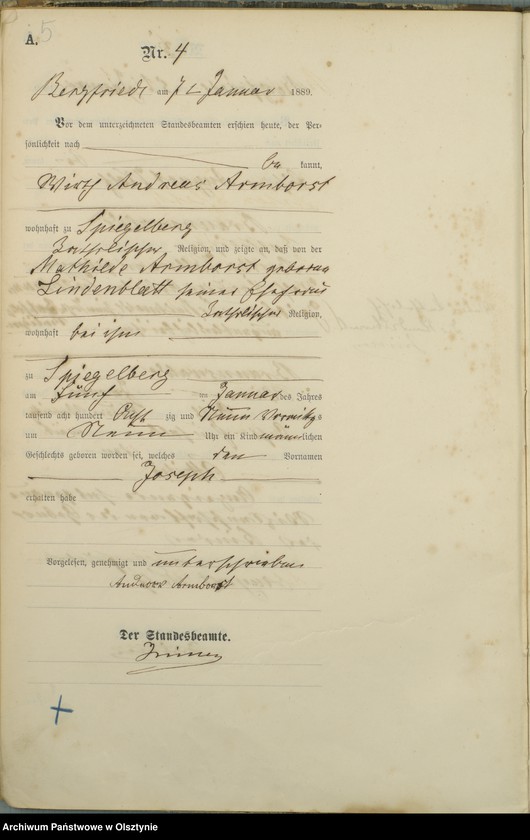 A. 5
Nr. 4
Bergfriede am 7 t Januar 1889.
Vor dem unterzeichneten Standesbeamten erschien heute, der Per-
sönlichkeit nach
be kannt,
Wirth Andreas Armborst
wohnhaft zu Spiegelberg
katholischer Religion, und zeigte an, daß von der
Mathilde Armborst geborene
Lindenblatt seiner Ehefrau
katholischer Religion,
wohnhaft bei ihm
zu Spiegelberg
am fünf ten Januar des Jahres
tausend acht hundert Acht zig und Neun Vormittags
um Neun Uhr ein Kind männlichen
Geschlechts geboren worden sei, welches den Vornamen
Joseph
erhalten habe
Vorgelesen, genehmigt und unterschrieben
Andreas Armborst
Der Standesbeamte.
Archiwum Państwowe w Olsztynie